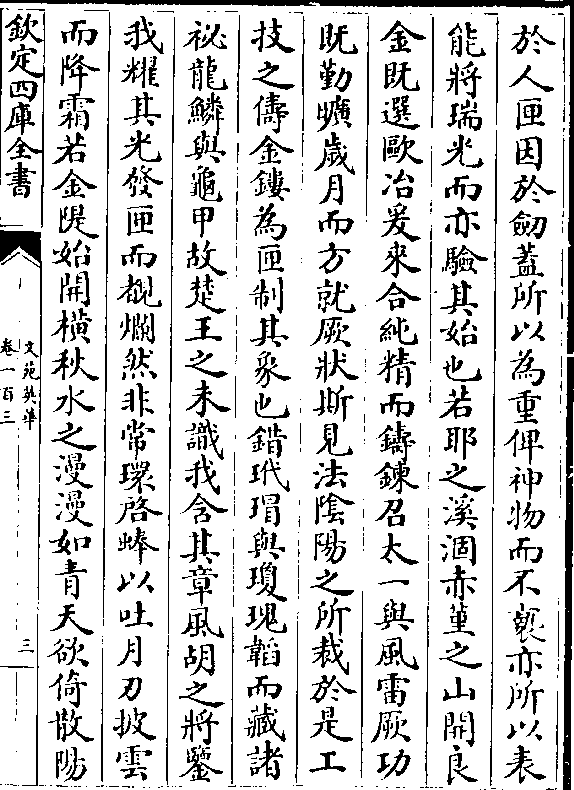 於人匣因於劒蓋所以為重俾神物而不褻亦所以表
能將瑞光而亦驗其始也若耶之溪涸赤堇之山開良
金既選歐冶爰來合純精而鑄鍊召太一與風雷厥功
既勤曠歲月而方就厥狀斯見法陰陽之所裁於是工
技之儔金鏤為匣制其象也錯玳瑁與瓊瑰韜而藏諸
祕龍鱗與龜甲故楚王之未識我含其章風胡之將鑒
我耀其光發匣而覩爛然非常環啓蜯以吐月刀披雲
而降霜若金隄始開横秋水之漫漫如青天欲倚散陽
欽定四庫全書
文苑英華
卷一百三
三